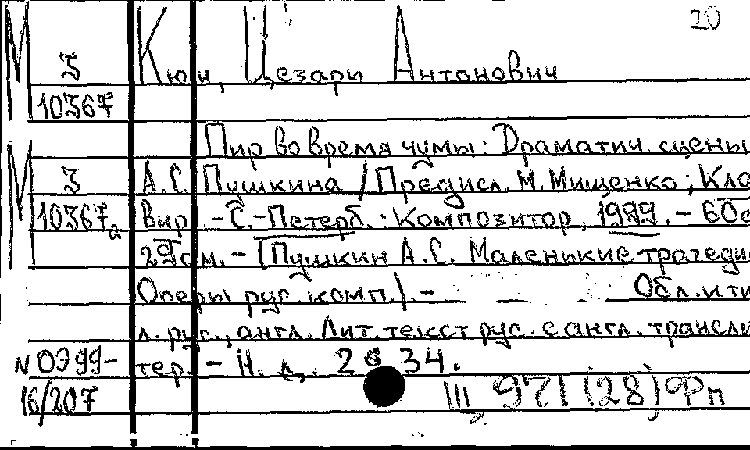 10
М З Кюи, Цезарь Антонович
10367
Пир во время чумы: Драматич. сцены
М З А.С. Пушкина / Предисл. М. Мищенко; Кла
10367а Вир. -С.-Петерб.: Композитор, 1999. - 60с
29см. - (Пушкин А.С. Маленькие трагеди
Оперы рус. комп.). - Обл. и ти
л. рус., англ. Лит. текст рус. с англ. трансли
N 0799- тер. - Н. д. 2 34.
16/207 III 971(28)Фп